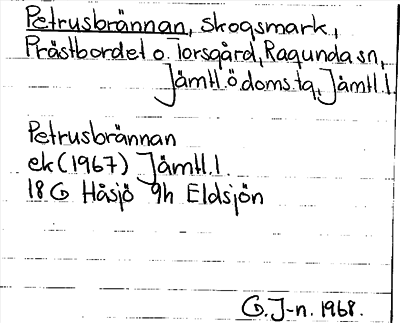 Petrusbrännan, skogsmark,
Prästbordet o. Torsgård, Ragunda sn,
Jämtl. ö. doms. tg, Jämtl. l.
Petrusbrännan
ek (1967) Jämtl. l.
18 G Håsjö 9h Eldsjön
G. J-n. 1968.